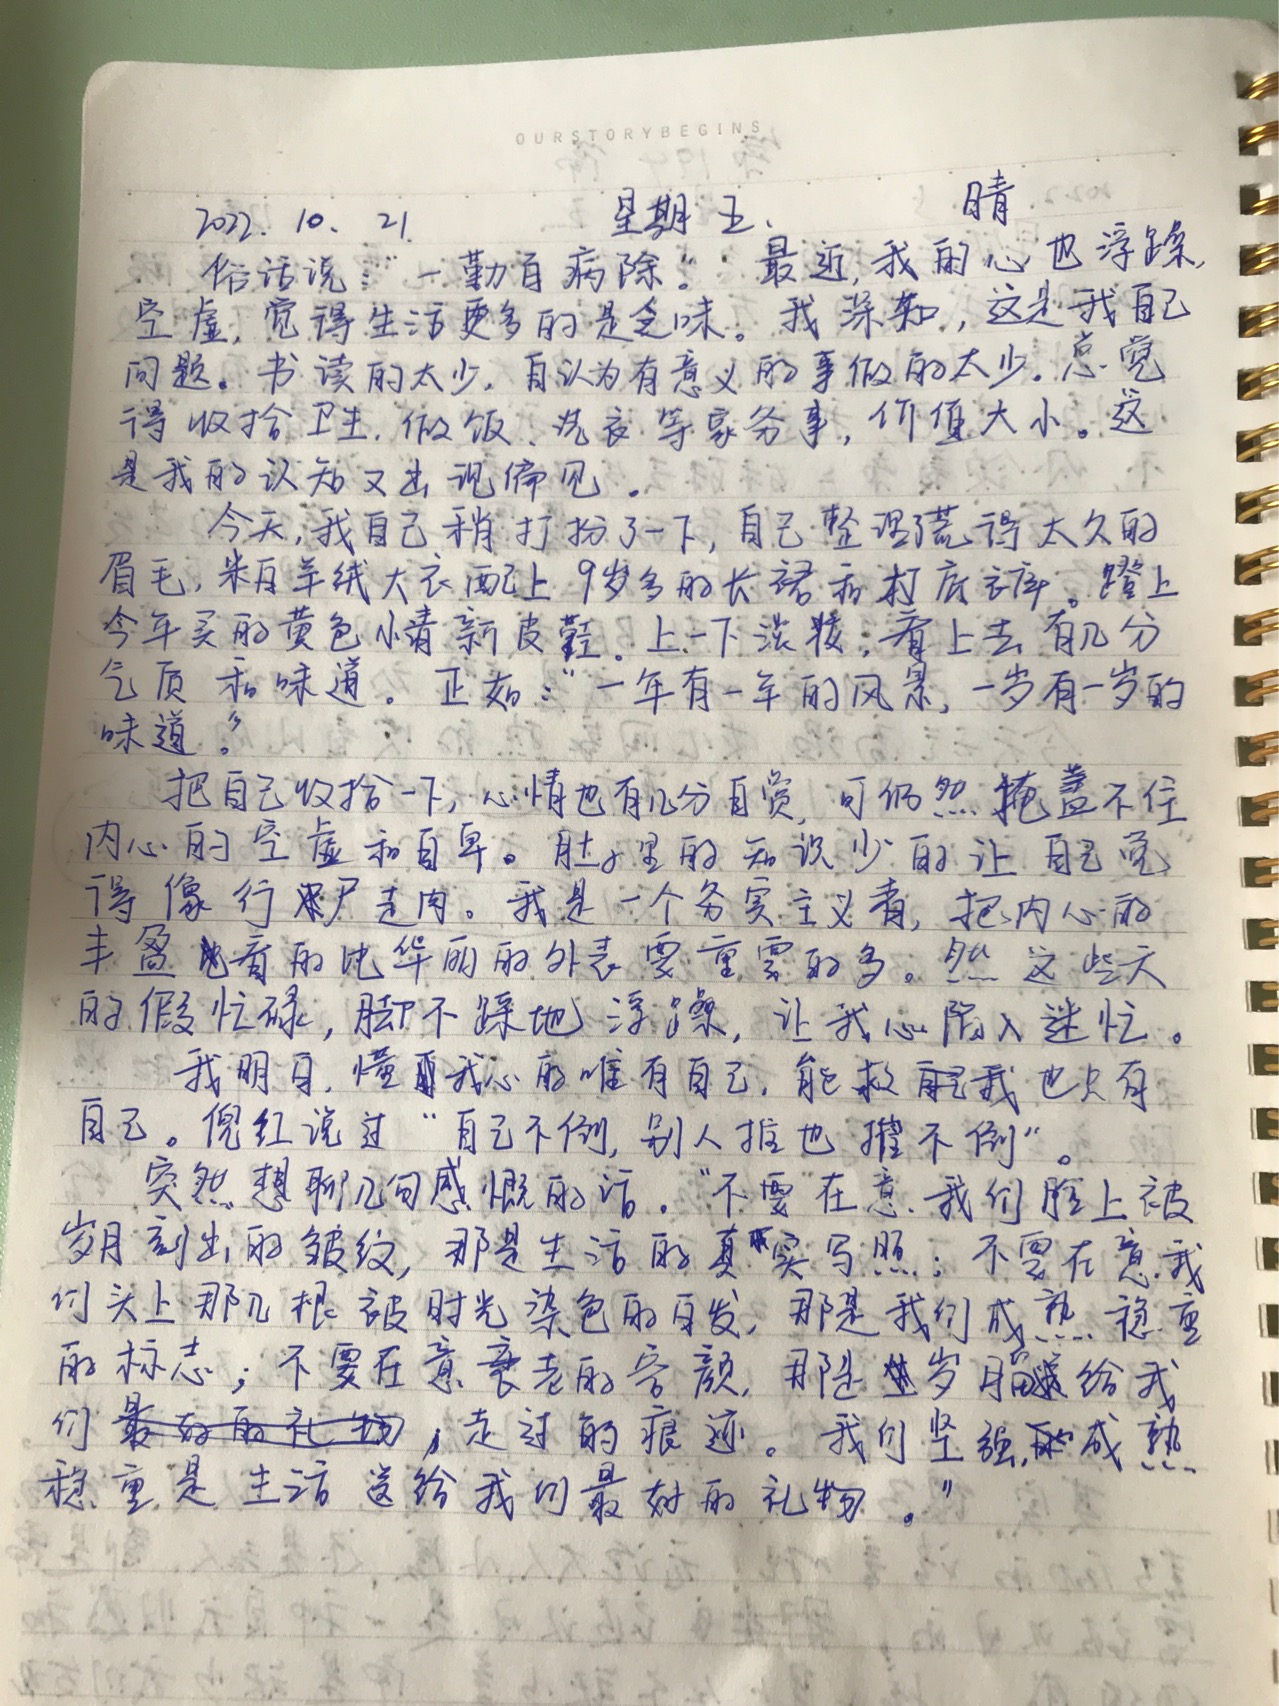 OURSTORYBEGINS
2022. 10. 21. 星期五. 晴
俗话说:“一勤百病除.” 最近,我的心也浮躁,
空虚,觉得生活更多的是乏味。我深知,这是我自己
问题。书读的太少,自认为有意义的事做的太少。总觉
得收拾卫生,做饭、洗衣等家务事,价值大小。这
是我的认知又出现偏见。
今天,我自己稍打扮了一下,自己整理荒得太久的
眉毛,米白羊绒大衣配上9岁多的长裙和打底衣裤。蹬上
今年买的黄色小精新皮鞋。上一下淡妆,看上去有几分
气质和味道。正如:“一年有一年的风景,一岁有一岁的
味道。”
把自己收拾一下,心情也有几分自赏,可仍然掩盖不住
内心的空虚和自卑。肚子里的知识少的让自己觉
得像行尸走肉。我是一个务实主义者,把内心的
丰盈看的比华丽的外表要重要的多。然这些天
的假忙碌,脚不踩地浮躁,让我心陷入迷忙。
我明白,懂我心的唯有自己,能救我也只有
自己。倪红说过“自己不倒,别人推也推不倒”。
突然想聊几句感慨的话。“不要在意我们脸上被
岁月刻出的皱纹,那是生活的真实写照;不要在意我
们头上那几根被时光染色的白发,那是我们成熟稳重
的标志;不要在意衰老的容颜,那是岁月给我
们最好的礼物,走过的痕迹。我们坚强,成熟
稳重是生活送给我们最好的礼物。”